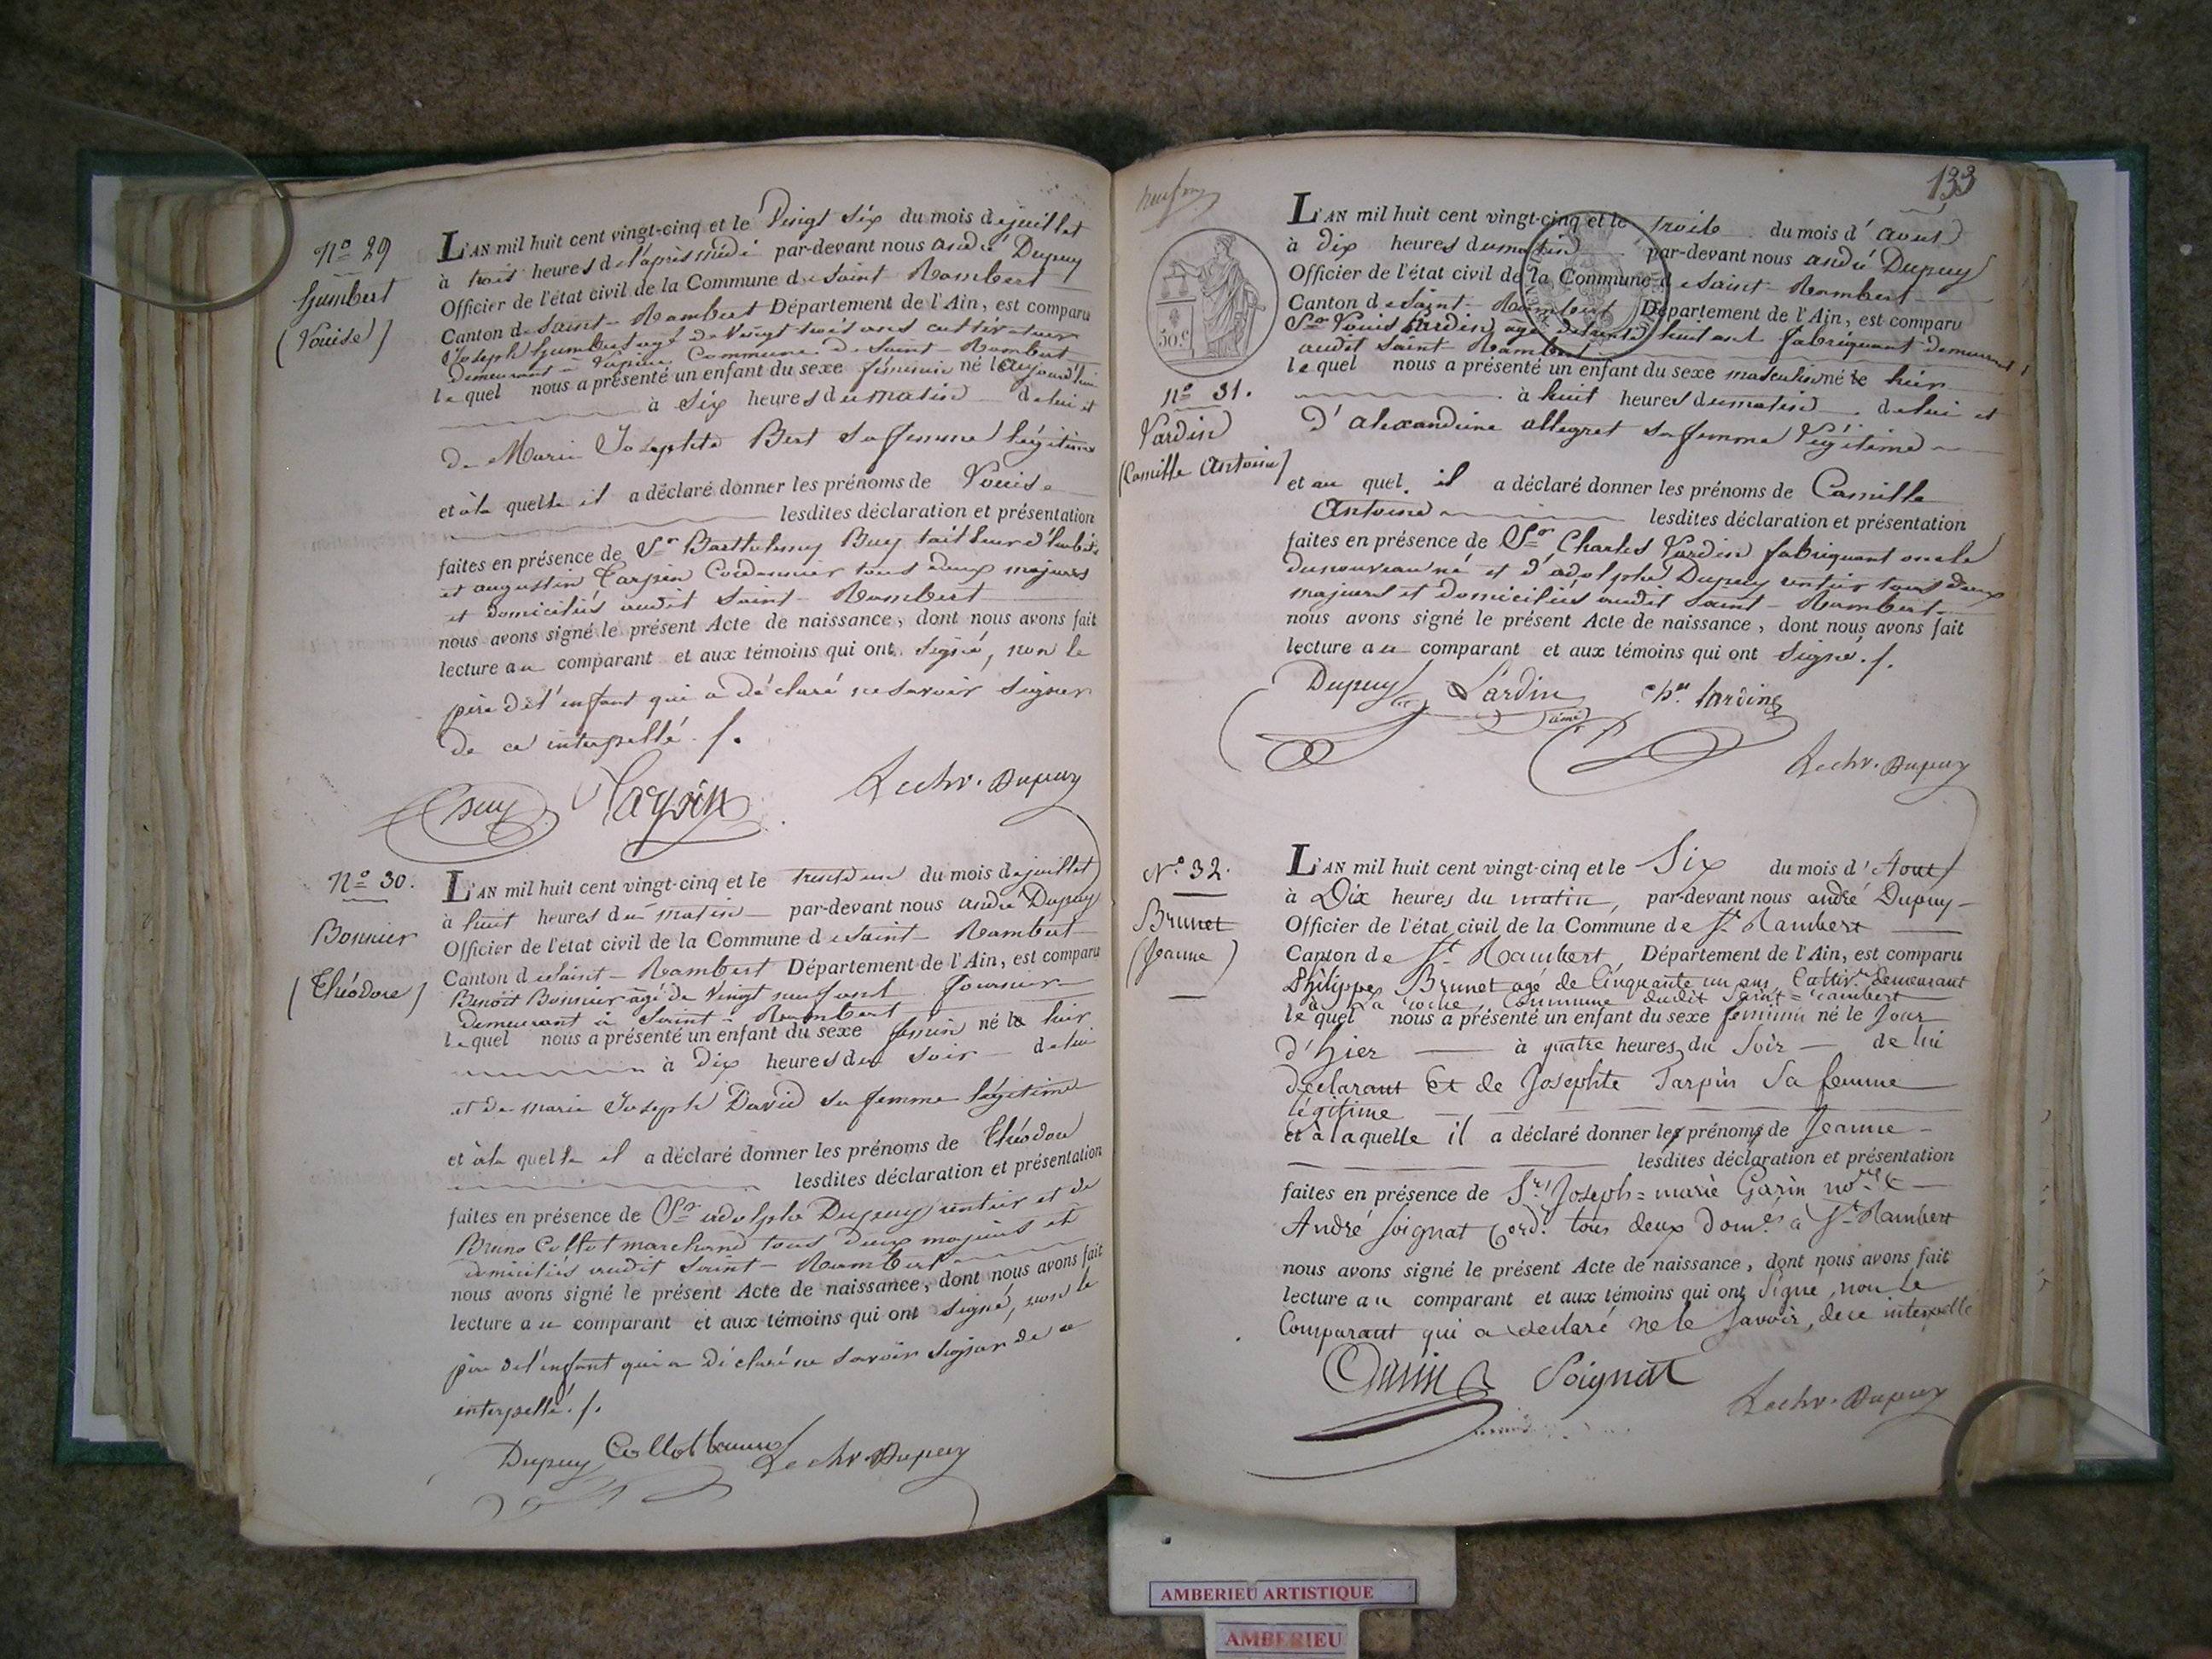 N.o 29
Humbert
(Louise)
L'AN mil huit cent vingt-cinq et le Vingt Six du mois de juillet
à trois heures de l'après midi par-devant nous andré Dupuy
Officier de l'état civil de la Commune de Saint-Rambert
Canton de Saint-Rambert Département de l'Ain, est comparu
Joseph Humbert agé de Vingt trois ans cultivateur
demeurant à Commune de Saint-Rambert
lequel nous a présenté un enfant du sexe féminin né le aujourd'hui
à Six heures du matin de lui et
de Marie Josephte Bert sa femme légitime
et à la quelle il a déclaré donner les prénoms de Louise
lesdites déclaration et présentation
faites en présence de Sr Barthelemy Buy tailleur d'habits
et augustin Tarpin Cordonnier tous deux majeurs
et domiciliés audit Saint-Rambert
nous avons signé le présent Acte de naissance, dont nous avons fait
lecture au comparant et aux témoins qui ont signé, non le
père de l'enfant qui a déclaré ne savoir signer
de ce interpellé ./.
Buy Tarpin Le chr. Dupuy
N.o 30.
Bonnier
(Théodore)
L'AN mil huit cent vingt-cinq et le trente un du mois de juillet
à huit heures du matin par-devant nous andré Dupuy
Officier de l'état civil de la Commune de Saint-Rambert
Canton de Saint-Rambert Département de l'Ain, est comparu
Benoit Bonnier âgé de Vingt neuf ans fournier
demeurant à Saint-Rambert
lequel nous a présenté un enfant du sexe feminin né le hier
à dix heures du soir de lui
et de marie Joseph David sa femme légitime
et à la quelle il a déclaré donner les prénoms de Théodore
lesdites déclaration et présentation
faites en présence de Sr adolphe Dupuy rentier et de
Bruno Collot marchand tous deux majeurs et
domiciliés audit Saint-Rambert
nous avons signé le présent Acte de naissance, dont nous avons fait
lecture au comparant et aux témoins qui ont signé, non le
père de l'enfant qui a déclaré ne savoir signer de ce
interpellé ./.
Dupuy Collot Le chr Dupuy
133
50.c
N.o 31.
Lardin
(Camille Antoine)
L'AN mil huit cent vingt-cinq et le trois du mois d'août
à dix heures du matin par-devant nous andré Dupuy
Officier de l'état civil de la Commune de Saint-Rambert
Canton de Saint-Rambert Département de l'Ain, est comparu
Sr Louis Lardin agé de huit ans fabriquant demeurant
audit Saint-Rambert
lequel nous a présenté un enfant du sexe masculin né le hier
à huit heures du matin de lui et
d'alexandrine allegret sa femme légitime
et au quel il a déclaré donner les prénoms de Camille
Antoine lesdites déclaration et présentation
faites en présence de Sr Charles Lardin fabriquant oncle
du nouveau né et d'adolphe Dupuy rentier tous deux
majeurs et domiciliés audit Saint-Rambert
nous avons signé le présent Acte de naissance, dont nous avons fait
lecture au comparant et aux témoins qui ont signé ./.
Dupuy Lardin ainé Ch.les Lardin
Le chr. Dupuy
N.o 32.
Brunet
(Jeanne)
L'AN mil huit cent vingt-cinq et le Six du mois d'Aout
à Dix heures du matin, par-devant nous andré Dupuy
Officier de l'état civil de la Commune de St Rambert
Canton de St Rambert, Département de l'Ain, est comparu
Philippe Brunet agé de Cinquante un ans, Cultiv.r demeurant
à La roche, Commune dudit Saint=rambert
lequel nous a présenté un enfant du sexe feminin né le Jour
d'hier à quatre heures du Soir de lui
declarant Et de Josephte Tarpin Sa femme
légitime
et à laquelle il a déclaré donner les prénoms de Jeanne
lesdites déclaration et présentation
faites en présence de Sr. Joseph=marie Garin no.re &
André Soignat Cord.r tous deux dom.és à St Rambert
nous avons signé le présent Acte de naissance, dont nous avons fait
lecture au comparant et aux témoins qui ont Signé, non Le
Comparant qui a declaré ne le Savoir, de ce interpellé
Garin Soignat
Le chr. Dupuy
AMBERIEU ARTISTIQUE
AMBERIEU